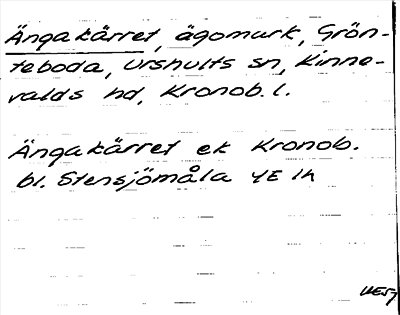 Ängakärret, ägomark, Grön-
teboda, Urshults sn, Kinne-
valds hd, Kronob. l.
Ängakärret ek Kronob.
bl. Stensjömåla 4E 1h